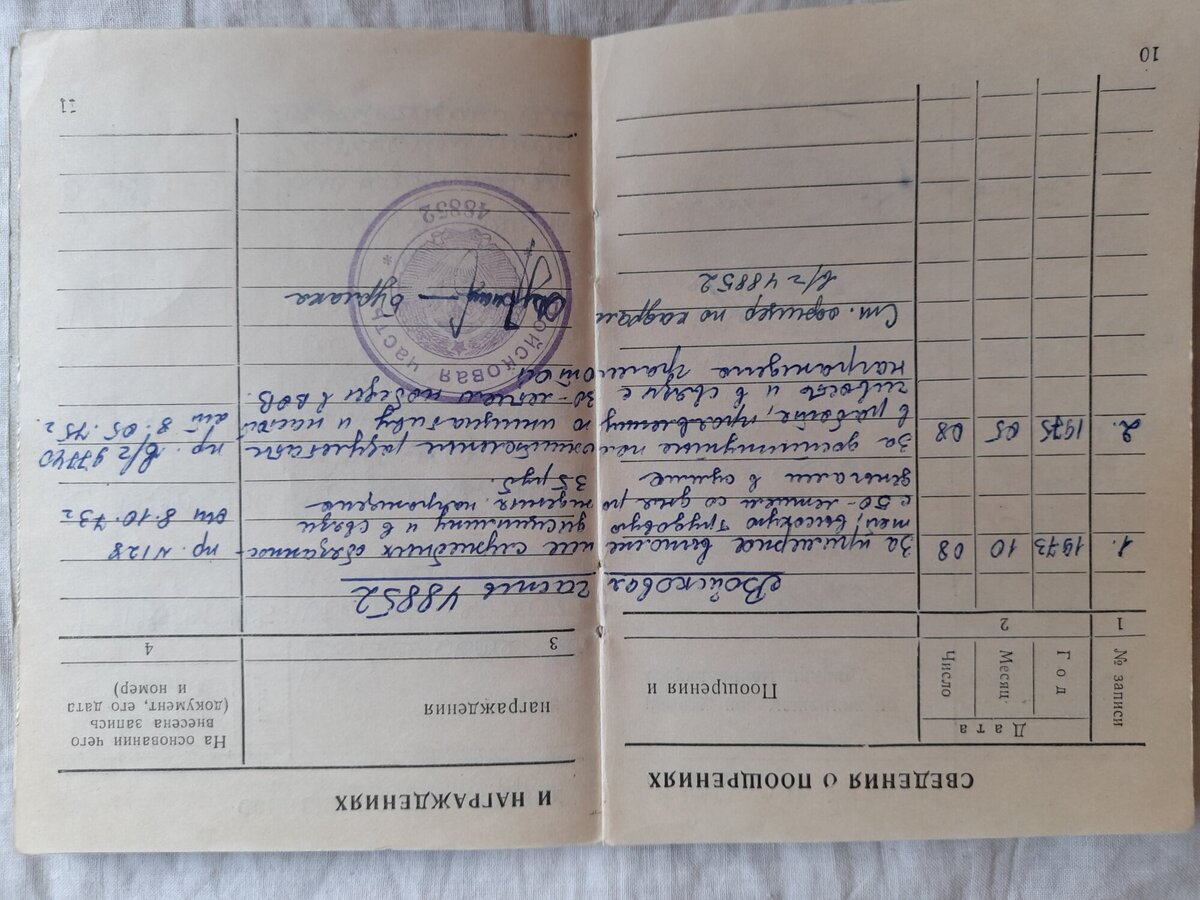 СВЕДЕНИЯ О ПООЩРЕНИЯХ И НАГРАЖДЕНИЯХ
№ записи
Дата
Год
Месяц
Число
Поощрения и награждения
На основании чего
внесена запись
(документ, его дата
и номер)
1 2 3 4
Войсковая часть 48852
1. 1973 10 08 За примерное выполнение служебных обязаннос- пр. N128
тей, высокую трудовую дисциплину и в связи от 8.10.73г
с 50-летием со дня рождения награждена
деньгами в сумме 35 руб.
2. 1975 05 08 За достигнутые положительные результаты пр. в/г 97740
в работе, проявленную инициативу и настой от 8.05.75г.
чивость и в связи с 30-летием победы в ВОВ.
награждена грамотой
Ст. офицер по кадрам
в/ч 48852
ВОЙСКОВАЯ ЧАСТЬ
* 48852 *
10
11